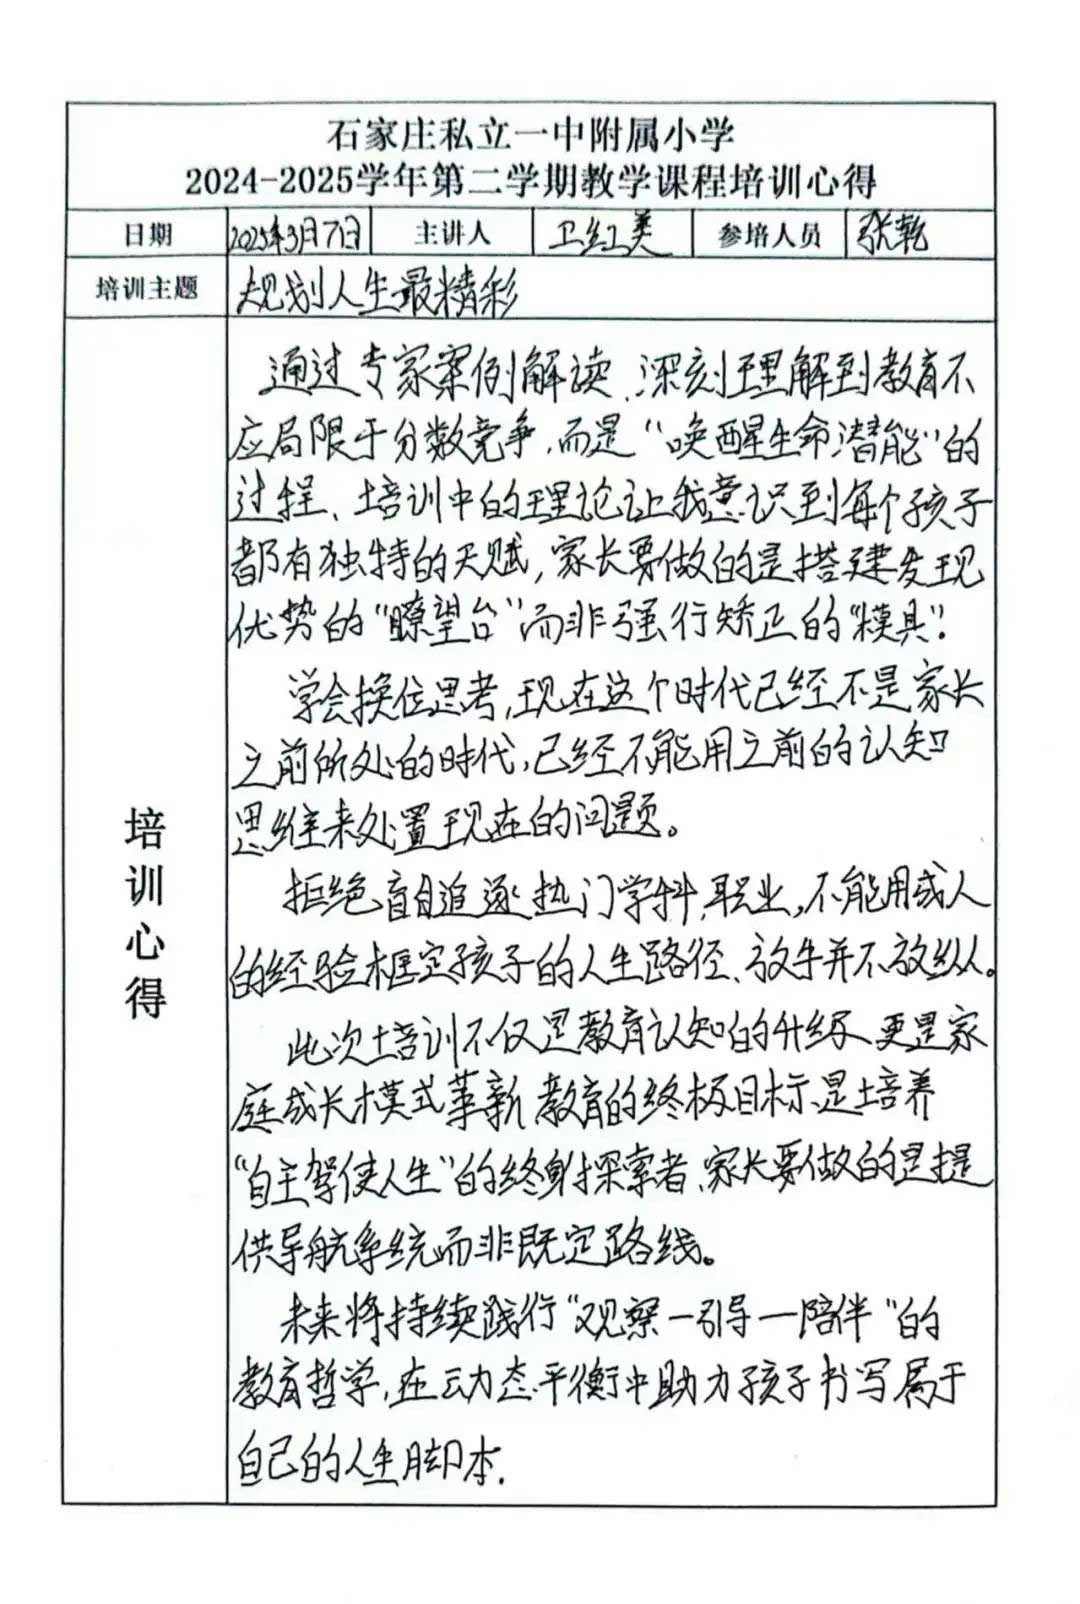 石家庄私立一中附属小学
2024-2025学年第二学期教学课程培训心得
日期 2025年3月7日 主讲人 卫红美 参培人员 张乾
培训主题 规划人生最精彩
培训心得
通过专家案例解读、深刻理解到教育不
应局限于分数竞争,而是“唤醒生命潜能”的
过程、培训中的理论让我意识到每个孩子
都有独特的天赋,家长要做的是搭建发现
优势的“瞭望台”而非强行矫正的“模具”.
学会换位思考,现在这个时代已经不是家长
之前所处的时代,已经不能用之前的认知
思维来处置现在的问题。
拒绝盲目追逐热门学科,职业,不能用成人
的经验框定孩子的人生路径、放手并不放纵。
此次培训不仅是教育认知的升级、更是家
庭成长模式革新 教育的终极目标是培养
“自主驾使人生”的终身探索者、家长要做的是提
供导航系统而非既定路线。
未来将持续践行“观察—引导—陪伴”的
教育哲学,在动态平衡中助力孩子书写属于
自己的人生脚本.